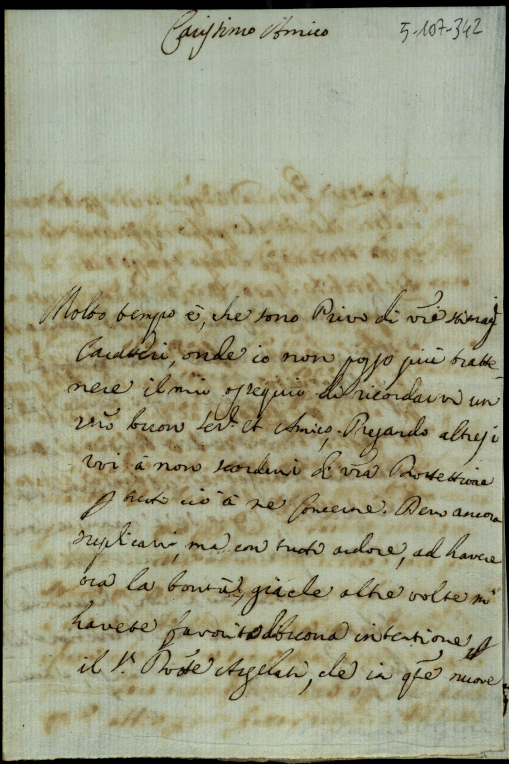 Carissimo Amico
5-107-342
Molto tempo è, che sono Privo di vr̃e stimati
Caratteri, onde io non posso più tratte-
nere il mio ossequio di ricordarvi un
vr̃o buon Ser.e et Amico, Pregando altresi
voi à non scordarvi di vr̃a Protettione
tutto ciò à me concerne. Devo ancora
suplicarvi, ma con tutto ardore, ad havere
ora la bontà, giàche altre volte m'
havete favorito di buona intentione
il S.r Argelati, che in q̃te nuove